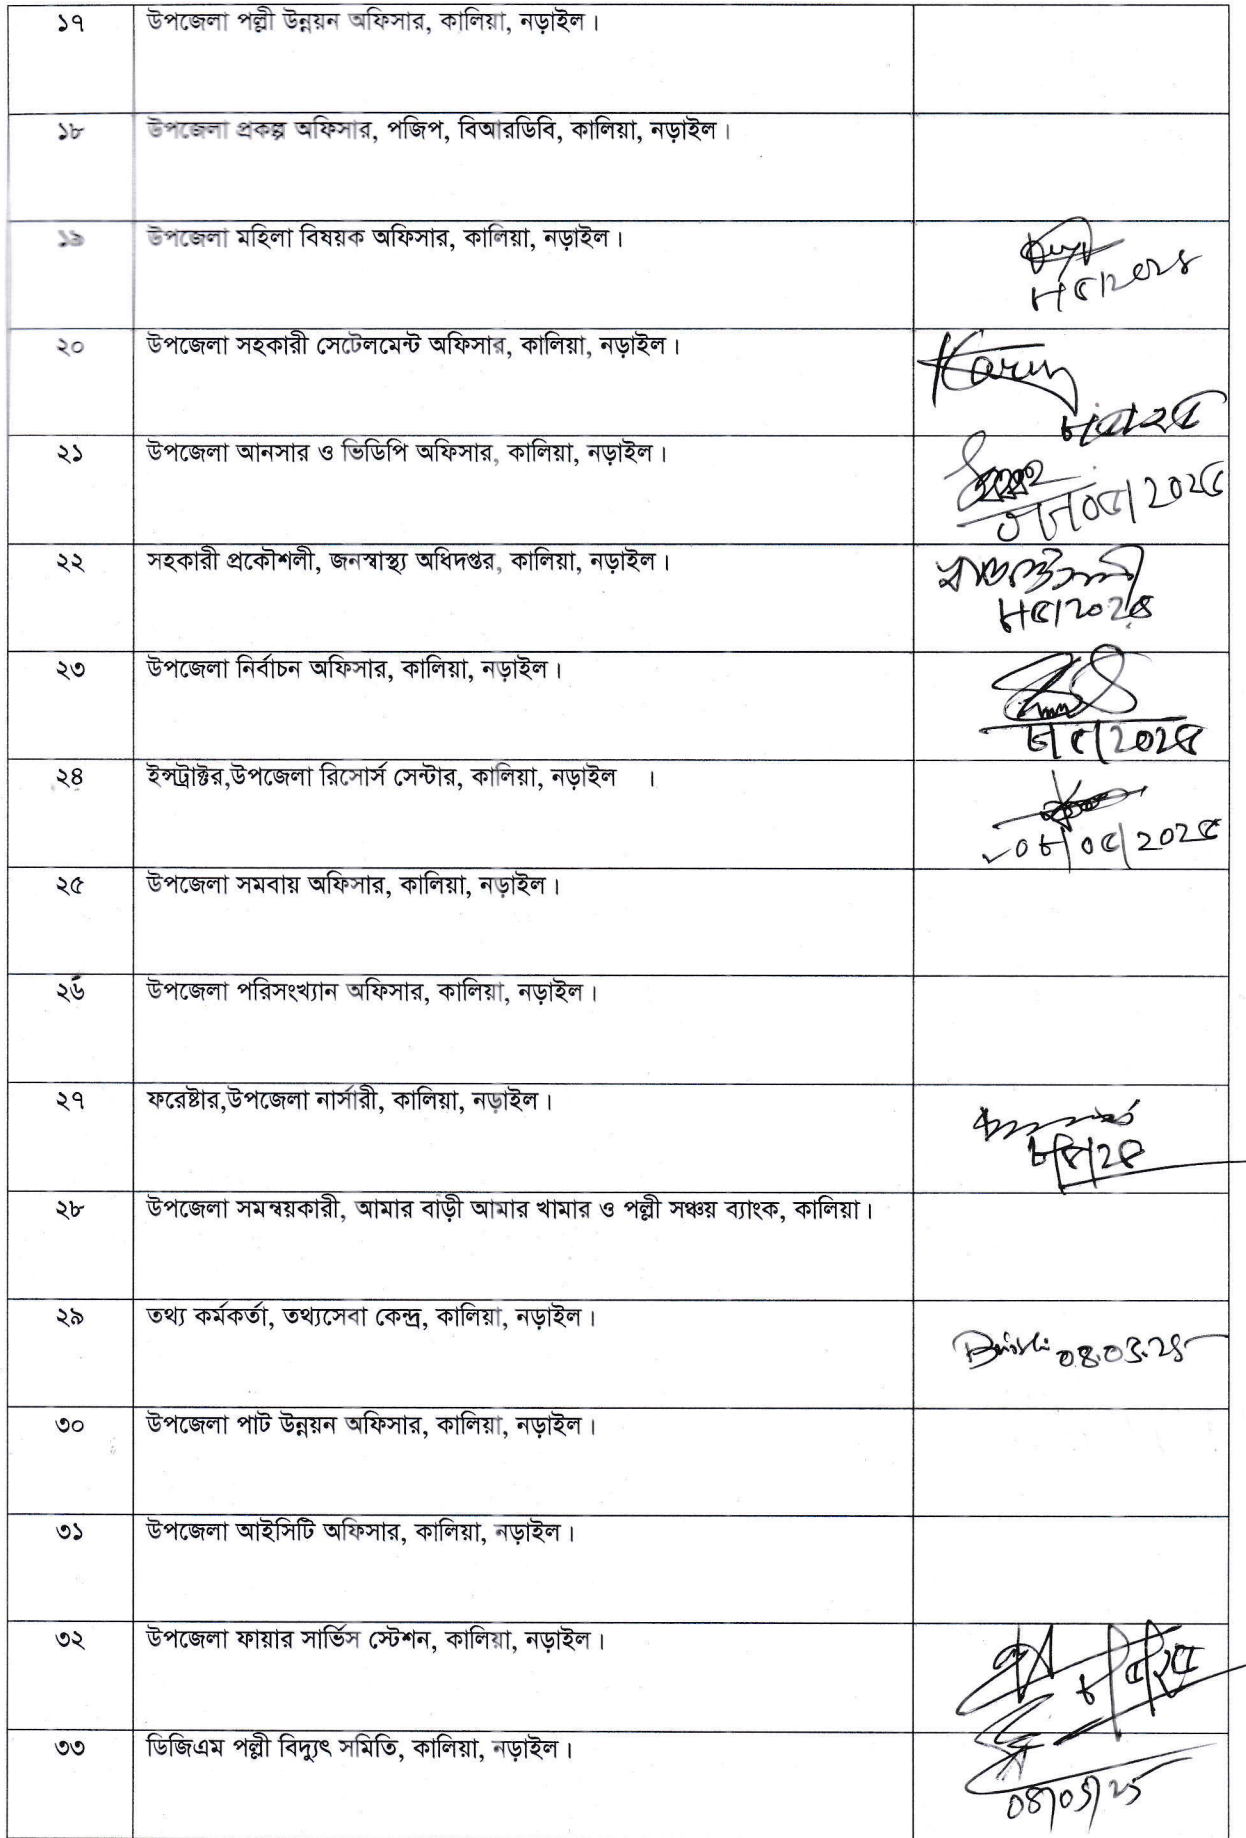 ১৭ উপজেলা পল্লী উন্নয়ন অফিসার, কালিয়া, নড়াইল।
১৮ উপজেলা প্রকল্প অফিসার, পজিপ, বিআরডিবি, কালিয়া, নড়াইল।
১৯ উপজেলা মহিলা বিষয়ক অফিসার, কালিয়া, নড়াইল।
২০ উপজেলা সহকারী সেটেলমেন্ট অফিসার, কালিয়া, নড়াইল।
২১ উপজেলা আনসার ও ভিডিপি অফিসার, কালিয়া, নড়াইল।
২২ সহকারী প্রকৌশলী, জনস্বাস্থ্য অধিদপ্তর, কালিয়া, নড়াইল।
২৩ উপজেলা নির্বাচন অফিসার, কালিয়া, নড়াইল।
২৪ ইন্সট্রাক্টর,উপজেলা রিসোর্স সেন্টার, কালিয়া, নড়াইল ।
২৫ উপজেলা সমবায় অফিসার, কালিয়া, নড়াইল।
২৬ উপজেলা পরিসংখ্যান অফিসার, কালিয়া, নড়াইল।
২৭ ফরেষ্টার,উপজেলা নার্সারী, কালিয়া, নড়াইল।
২৮ উপজেলা সমন্বয়কারী, আমার বাড়ী আমার খামার ও পল্লী সঞ্চয় ব্যাংক, কালিয়া।
২৯ তথ্য কর্মকর্তা, তথ্যসেবা কেন্দ্র, কালিয়া, নড়াইল। 08.05.25
৩০ উপজেলা পাট উন্নয়ন অফিসার, কালিয়া, নড়াইল।
৩১ উপজেলা আইসিটি অফিসার, কালিয়া, নড়াইল।
৩২ উপজেলা ফায়ার সার্ভিস স্টেশন, কালিয়া, নড়াইল।
৩৩ ডিজিএম পল্লী বিদ্যুৎ সমিতি, কালিয়া, নড়াইল। 08/05/25